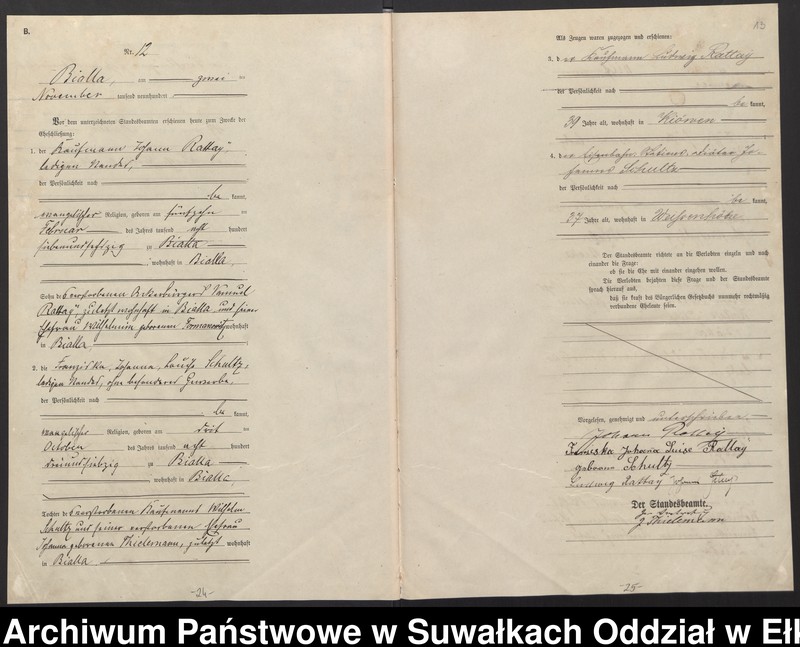 B.
Nr. 12
Bialla, am zwei ten
November tausend neunhundert
Vor dem unterzeichneten Standesbeamten erschienen heute zum Zwecke der
Eheschließung:
1. der Kaufmann Johann Rattay,
ledigen Standes,
der Persönlichkeit nach
be kannt,
evangelischer Religion, geboren am fünfzehn ten
Februar des Jahres tausend acht hundert
siebenundsechzig zu Bialla
, wohnhaft in Bialla,
Sohn des verstorbenen Ackerbürgers Samuel
Rattay, zuletzt wohnhaft in Bialla und seiner
Ehefrau Wilhelmine geborenen wohnhaft
in Bialla
2. die Franziska, Johanna, Louise Schultz,
ledigen Standes, ohne besonderes Gewerbe,
der Persönlichkeit nach
be kannt,
evangelischer Religion, geboren am drit ten
October des Jahres tausend acht hundert
dreiundsiebzig zu Bialla
, wohnhaft in Bialla,
Tochter des verstorbenen Kaufmanns Wilhelm
Schultz und seiner verstorbenen Ehefrau
Johanna geborenen Thielemann, zuletzt wohnhaft
in Bialla
-24-
13
Als Zeugen waren zugezogen und erschienen:
3. der Kaufmann Ludwig Rattay
der Persönlichkeit nach
be kannt,
39 Jahre alt, wohnhaft in Kiöwen
4. der Jo-
hannes Schultz
der Persönlichkeit nach
be kannt,
27 Jahre alt, wohnhaft in Weissenhöhe
Der Standesbeamte richtete an die Verlobten einzeln und nach
einander die Frage:
ob sie die Ehe mit einander eingehen wollen.
Die Verlobten bejahten diese Frage und der Standesbeamte
sprach hierauf aus,
daß sie kraft des Bürgerlichen Gesetzbuchs nunmehr rechtmäßig
verbundene Eheleute seien.
Vorgelesen, genehmigt und unterschrieben
Johann Rattay
Franziska Johanna Luise Rattay
geborene Schultz
Ludwig Rattay
Der Standesbeamte.
Thielemann
-25-
Archiwum Państwowe w Suwałkach Oddział w Ełk